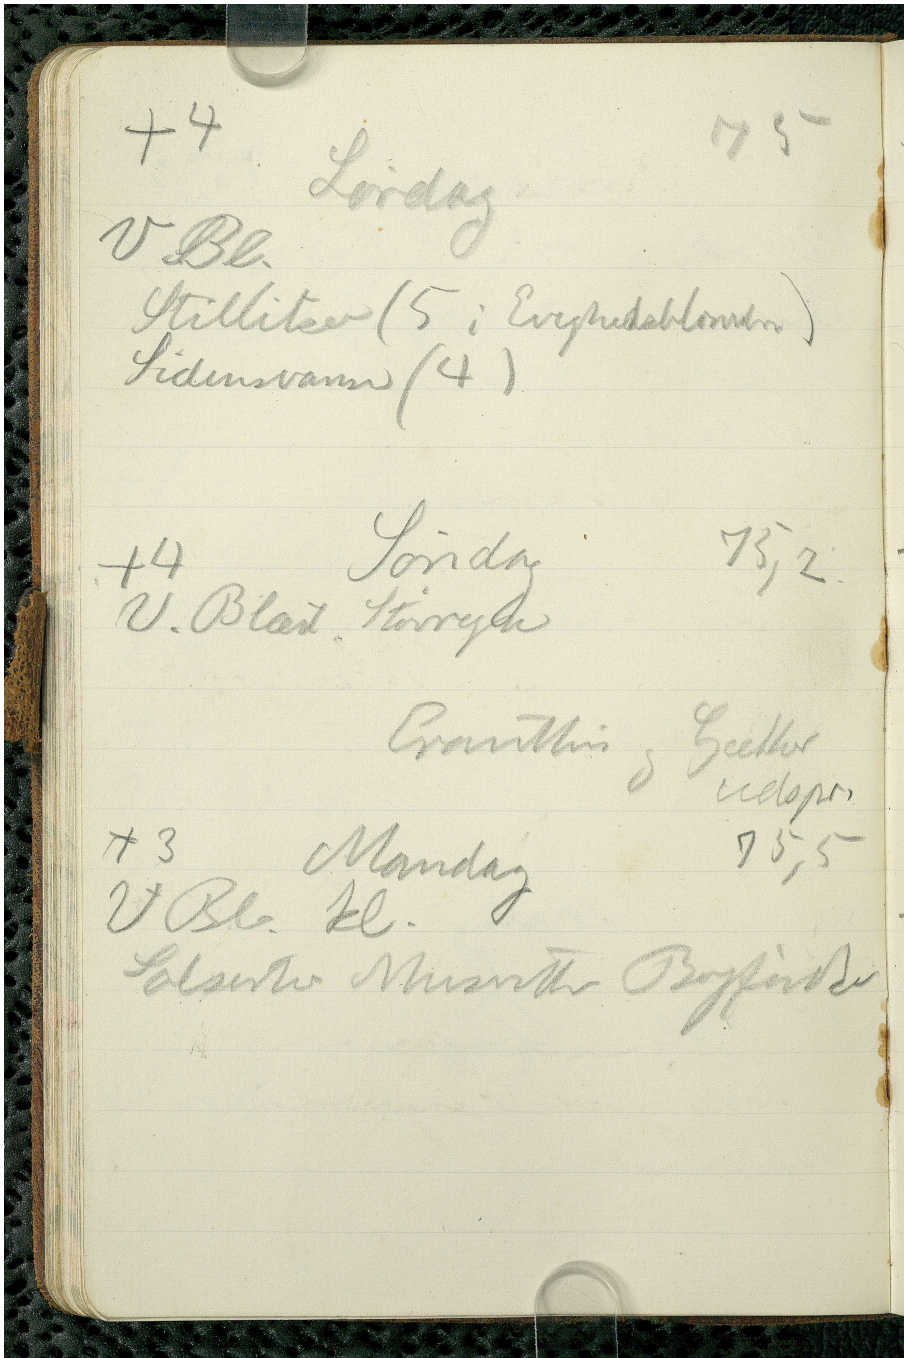 +4 75
Lørdag
V Bl.
Stillitser (5 i Evighedsblomster)
Sidensvanse (4)
+4 Søndag 75,2
V. Blæst Størregn
Eranthis og Gækker
udspr.
+3 Mandag 75,5
V Bl. kl.
Solsorte Musvitter Bogfinker